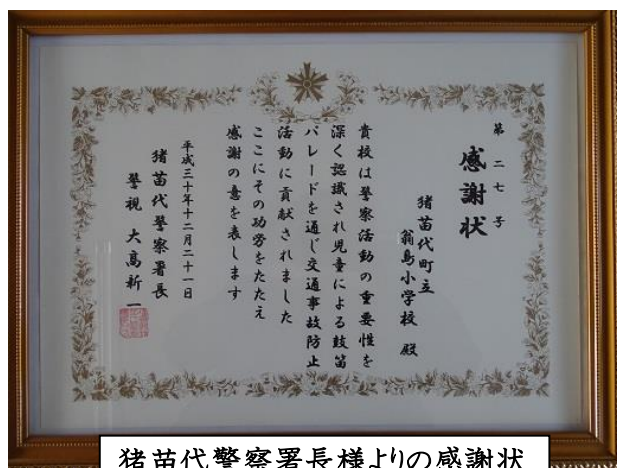 第二七号
感謝状
猪苗代町立
翁島小学校 殿
貴校は警察活動の重要性を
深く認識され児童による鼓笛
パレードを通じ交通事故防止
活動に貢献されました
ここにその功労をたたえ
感謝の意を表します
平成三十年十二月二十一日
猪苗代警察署長
警視 大髙新一
猪苗代警察署長様よりの感謝状